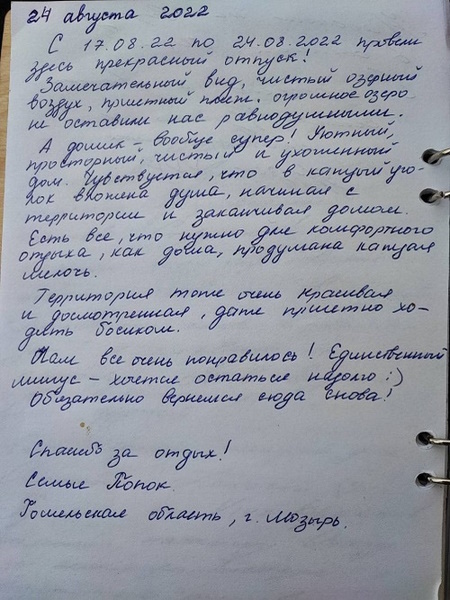 24 августа 2022
С 17.08.22 по 24.08.2022 провели
здесь прекрасный отпуск!
Замечательный вид, чистый озерный
воздух, приятный пляж, огромное озеро
не оставили нас равнодушными.
А домик – вообще супер! Уютный,
просторный, чистый и ухоженный
дом. Чувствуется, что в каждый уго-
лок вложена душа, начиная с
территории и заканчивая домом.
Есть все, что нужно для комфортного
отдыха, как дома, продумана каждая
мелочь.
Территория тоже очень красивая
и досмотренная, даже приятно хо-
дить босиком.
Нам все очень понравилось! Единственный
минус – хочется остаться надолго :)
Обязательно вернемся сюда снова!
Спасибо за отдых!
Семья Попок.
Гомельская область, г. Мозырь.